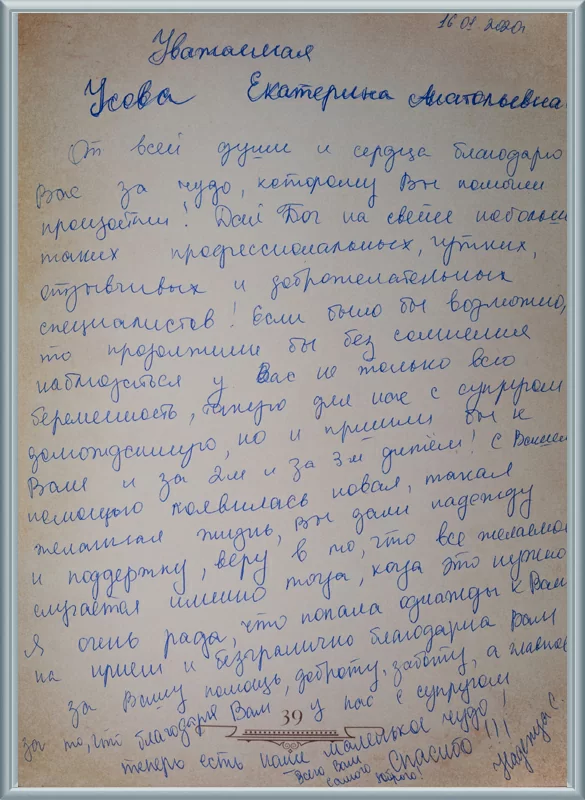 16.01.2020г
Уважаемая
Усова Екатерина Анатольевна
От всей души и сердца благодарю
Вас за чудо, которому Вы помогли
произойти! Дай Бог на свете побольше
таких профессиональных, чутких,
отзывчивых и доброжелательных
специалистов! Если было бы возможно,
то продолжили бы без сомнения
наблюдаться у Вас не только всю
беременность, такую для нас с супругом
долгожданную, но и пришли бы к
Вам и за 2м и за 3м дитём! С Вашей
помощью появилась новая, такая
желанная жизнь, Вы дали надежду
и поддержку, веру в то, что все желаемое
случается именно тогда, когда это нужно
Я очень рада, что попала однажды к Вам
на прием и безгранично благодарна Вам
за Вашу помощь, доброту, заботу, а главное
за то, что благодаря Вам у нас с супругом
39
теперь есть наше маленькое чудо!
Спасибо!!!
Всего Вам
самого доброго!
Надежда С.